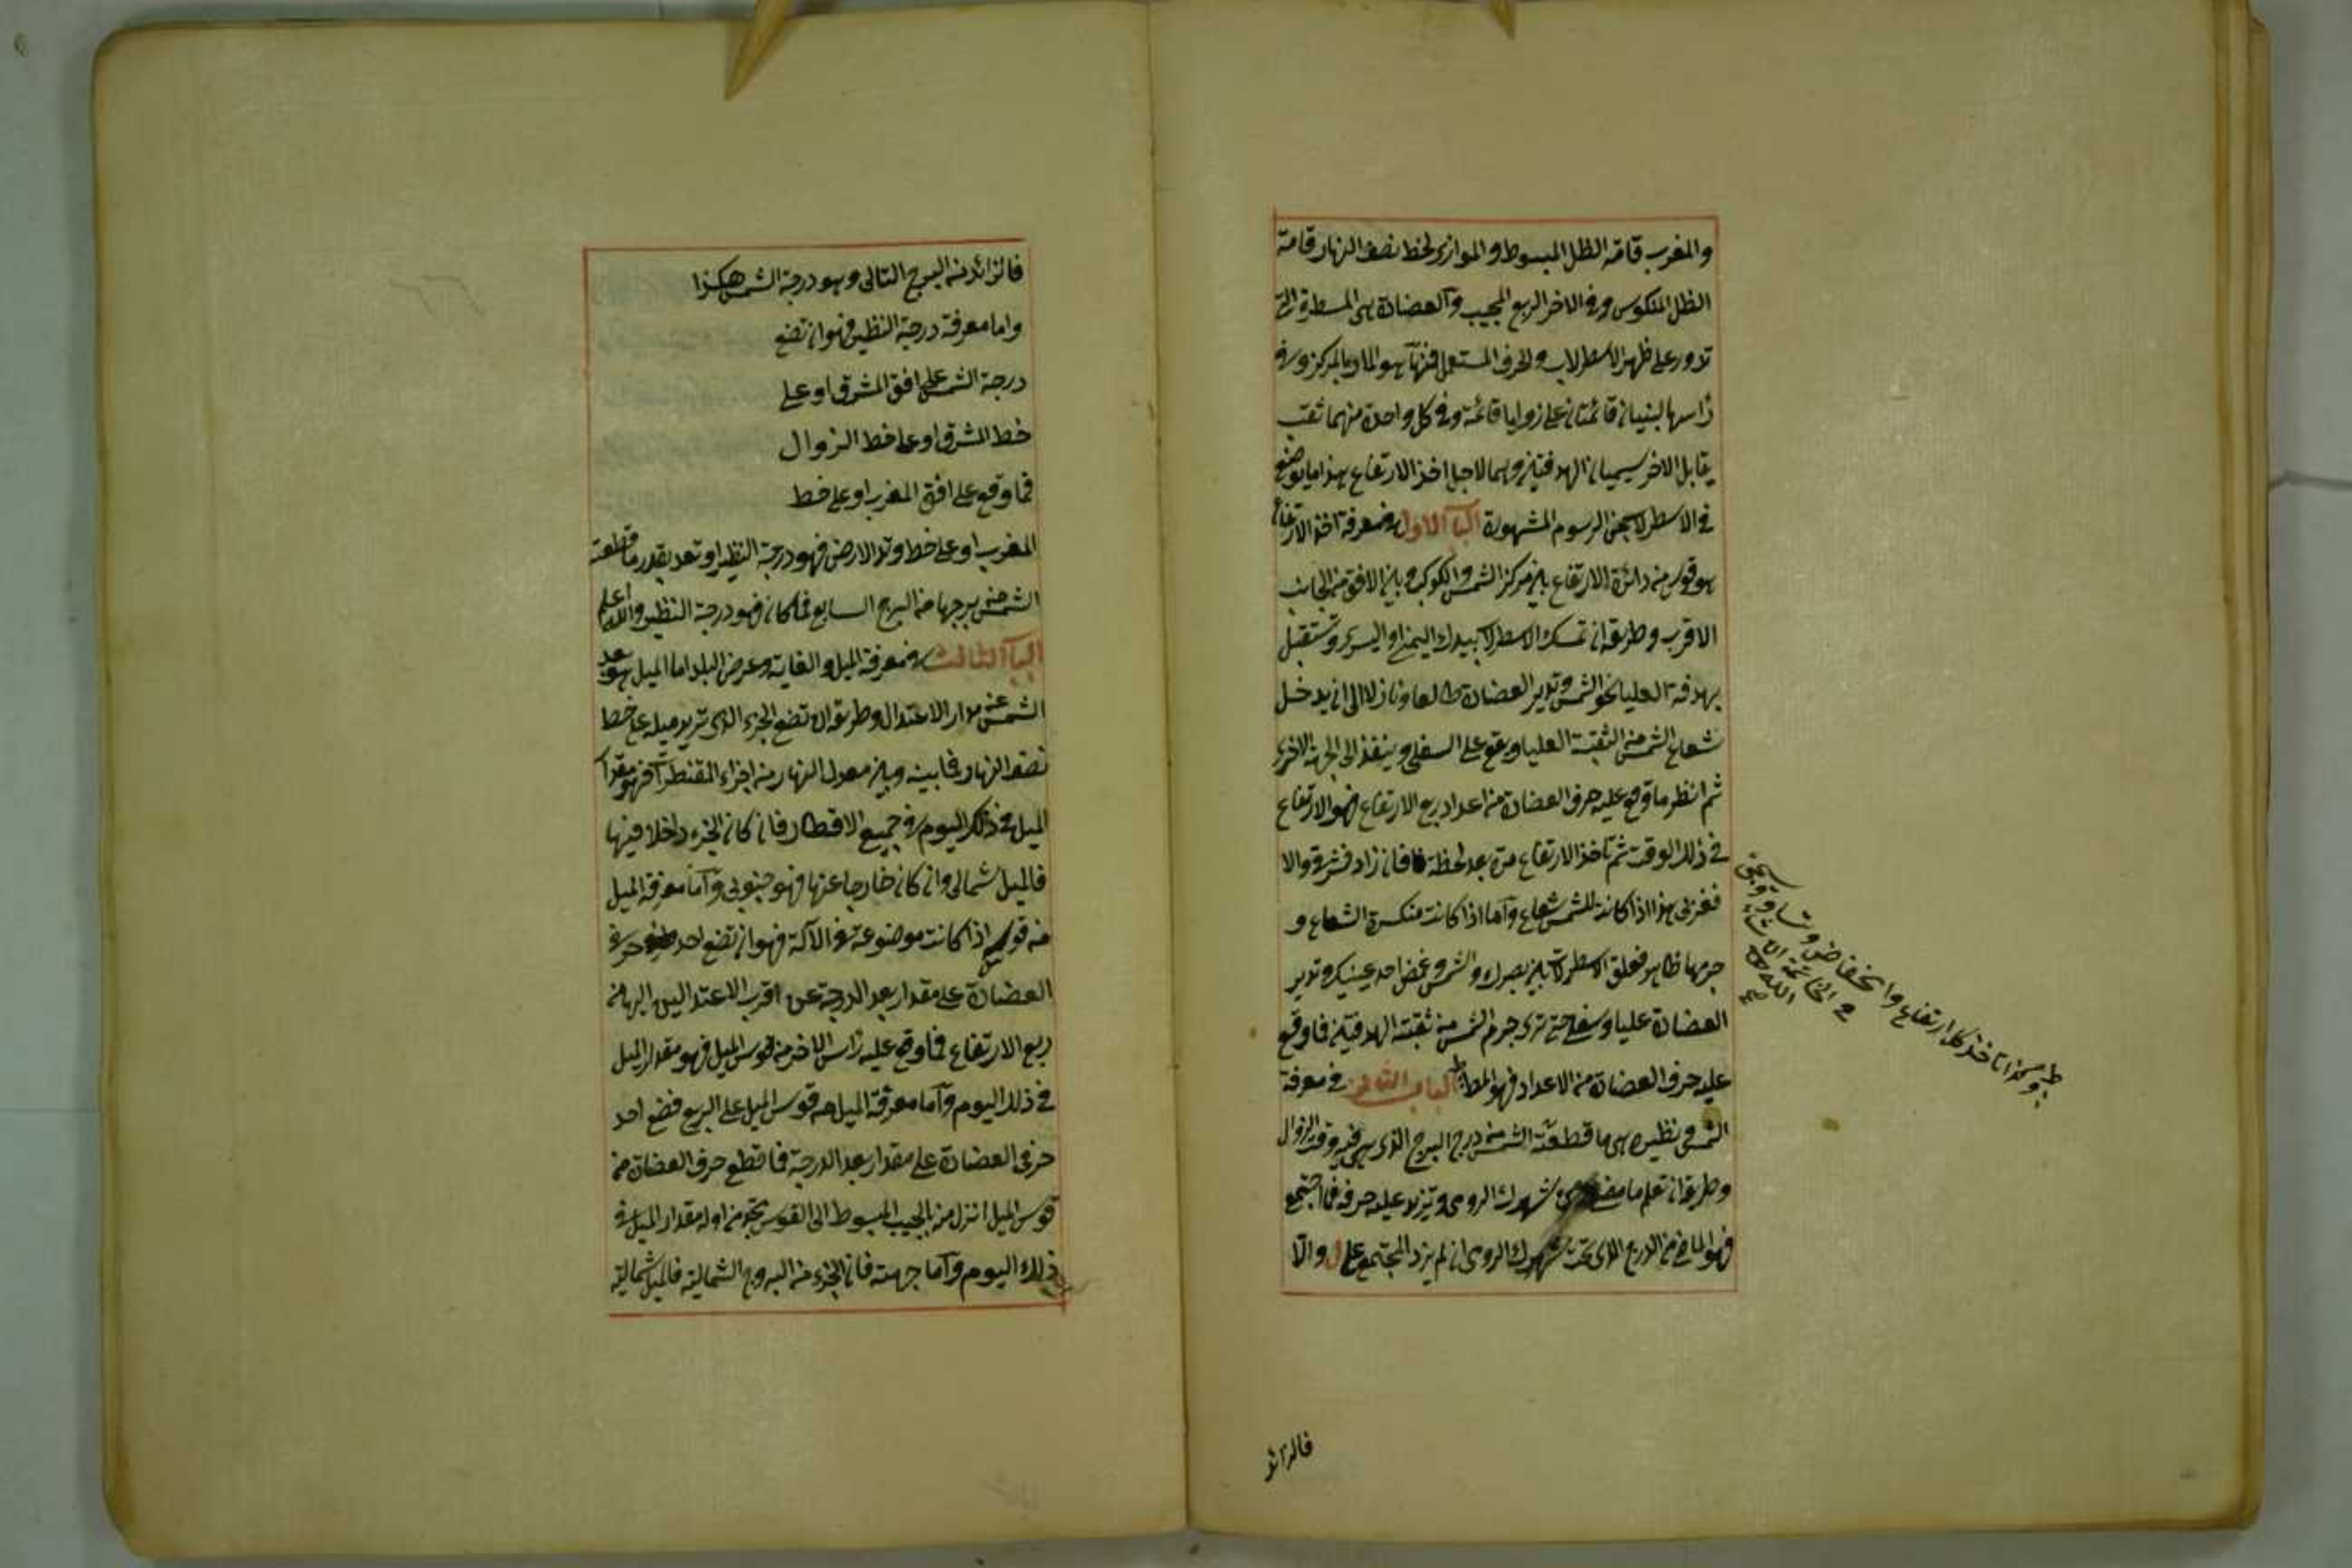 والمغرب قامة الظل المبسوط والموازى لخط نصف النهار قامة
الظل المنكوس وفى الاخر الربع المجيب والعضادة هى المسطرة التى
تدور على ظهر الاسطرلاب والحرف المستعمل منها هو المار بالمركز وفى
راسها لبنتان قائمتان على زوايا قائمة وفى كل واحدة منهما ثقب
يقابل الاخر يسميان الهدفتين وهما لاجل اخذ الارتفاع هذا ما يوضع
فى الاسطرلاب من الرسوم المشهورة الباب الاول فى معرفة اخذ الارتفاع
هو قوس من دائرة الارتفاع بين مركز الشمس والكوكب وبين الافق من الجانب
الاقرب وطريقه ان تمسك الاسطرلاب بيدك اليمنى او اليسرى وتستقبل
بهدفة العليا نحو الشمس وتدير العضادة طالعا ونازلا الى ان يدخل
شعاع الشمس من الثقبة العليا ويقع على السفلى وينفذ الى الجهة الاخرى
ثم انظر ما وقع عليه حرف العضادة من اعداد ربع الارتفاع فهو الارتفاع
فى ذلك الوقت ثم تاخذ الارتفاع مرة بعد لحظة فان زاد فشرقى والا
فغربى هذا اذا كانت للشمس شعاع واما اذا كانت منكسرة الشعاع و
جرمها ظاهر فعلق الاسطرلاب بين بصرك والشمس وغمض احد عينيك وتدير
العضادة عليا وسفلى حتى ترى جرم الشمس من ثقبتى الهدفتين فما وقع
عليه حرف العضادة من الاعداد فهو المط الباب الثانى فى معرفة
الشمس ونظيره هى ما قطعته الشمس من درج البرج الذى هى فيه وقت الزوال
وطريقه ان تعلم ما مضى من شهرك الرومى وتزيد عليه حرفه فما اجتمع
فهو الماضى من البرج الذى تحت شهرك الرومى ان لم يزد المجتمع على ل والا
وهكذا تاخذ كل ارتفاع وانخفاض
فى الخاتمة ان شاء الله
فالزائد
فالزائد من البرج التالى وهو درجة الشمس هكذا
واما معرفة درجة النظير فهو ان تضع
درجة الشمس على افق المشرق او على
خط المشرق او على خط الزوال
فما وقع على افق المغرب او على خط
المغرب او على خط وتد الارض فهو درجة النظير او تعد بقدر ما قطعت
الشمس من برجها من البرج السابع فما كان فهو درجة النظير والله اعلم
الباب الثالث فى معرفة الميل والغاية وعرض البلد اما الميل هو بعد
الشمس عن مدار الاعتدال وطريقه ان تضع الجزء الذى تريد ميله على خط
نصف النهار فما بينه وبين معدل النهار من اجزاء المقنطرات فهو مقدار
الميل فى ذلك اليوم فى جميع الاقطار فان كان الجزء داخلا فيها
فالميل شمالى وان كان خارجا عنها فهو جنوبى واما معرفة الميل
من قوس اذا كانت موضوعة فى الآلة فهو ان تضع احد حرفى
العضادة على مقدار بعد الدرجة عن اقرب الاعتدالين اليها من
ربع الارتفاع فما وقع عليه راس الاخر من قوس الميل فهو مقدار الميل
فى ذلك اليوم واما معرفة الميل من قوس الميل على الربع فضع احد
حرفى العضادة على مقدار بعد الدرجة فما قطع حرف العضادة من
قوس الميل انزل من بالجيب المبسوط الى القوس تجد من اوله مقدار الميل فى
ذلك اليوم واما جهته فان الجزء من البروج الشمالية فالميل شمالية